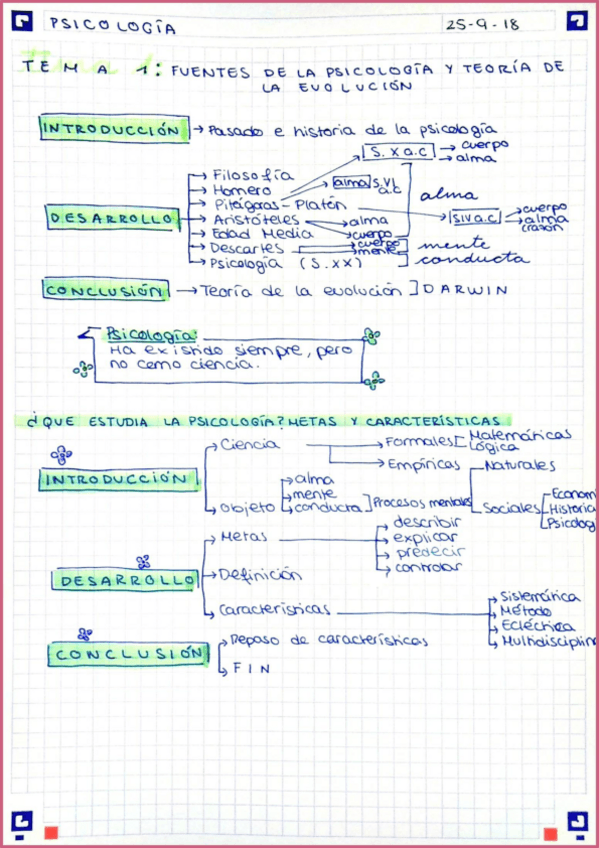 PSICOLOGÍA 25-9-18
TEMA 1: FUENTES DE LA PSICOLOGÍA Y TEORÍA DE
LA EVOLUCIÓN
INTRODUCCIÓN → Pasado e historia de la psicología
S. X a.C → cuerpo
→ alma
DESARROLLO
→ Filosofía
→ Homero
alma S. VI a.C
→ Pitágoras - Platón
alma
S IV a.C → cuerpo
→ alma
(razón)
→ Aristóteles → alma
→ cuerpo
→ Edad Media
→ Descartes → cuerpo
→ mente
mente
→ Psicología (S. XX)
conducta
CONCLUSIÓN → Teoría de la evolución ] DARWIN
Psicología:
Ha existido siempre, pero
no como ciencia.
¿QUE ESTUDIA LA PSICOLOGÍA? METAS Y CARACTERÍSTICAS
INTRODUCCIÓN
→ Ciencia
→ Formales [ Matemáticas
Lógica
→ Empíricas
Naturales
Sociales
Econom
Historia
Psicolog
→ Objeto
→ alma
→ mente
→ conducta ] Procesos mentales
DESARROLLO
→ Metas
→ describir
→ explicar
→ predecir
→ controlar
→ Definición
→ Características
→ Sistemática
→ Método
→ Ecléctica
→ Multidisciplin
CONCLUSIÓN
→ Repaso de características
→ FIN